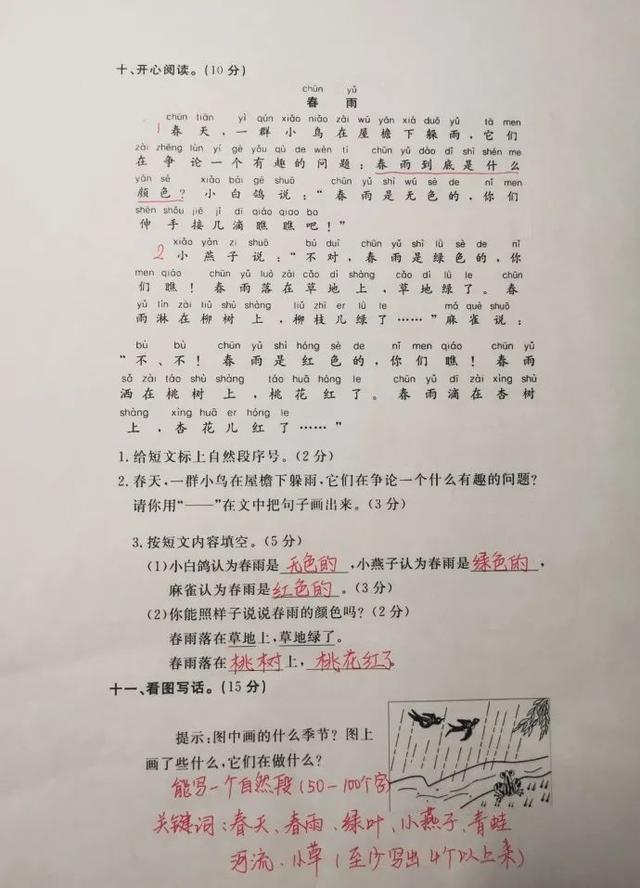 十、开心阅读。(10分)
chūn yǔ
春 雨
chūn tiān yì qún xiǎo niǎo zài wū yán xià duǒ yǔ tā men
1 春天,一群小鸟在屋檐下躲雨,它们
zài zhēng lùn yí gè yǒu qù de wèn tí chūn yǔ dào dǐ shì shén me
在争论一个有趣的问题:春雨到底是什么
yán sè xiǎo bái gē shuō chūn yǔ shì wú sè de nǐ men
颜色?小白鸽说:“春雨是无色的,你们
shēn shǒu jiē jǐ dī qiáo qiao ba
伸手接几滴瞧瞧吧!”
xiǎo yàn zi shuō bú duì chūn yǔ shì lǜ sè de nǐ
2 小燕子说:“不对,春雨是绿色的,你
men qiáo chūn yǔ luò zài cǎo dì shàng cǎo dì lǜ le chūn
们瞧!春雨落在草地上,草地绿了。春
yǔ lín zài liǔ shù shàng liǔ zhī er lǜ le má què shuō
雨淋在柳树上,柳枝儿绿了……”麻雀说:
bù bù chūn yǔ shì hóng sè de nǐ men qiáo chūn yǔ
“不、不!春雨是红色的,你们瞧!春雨
sǎ zài táo shù shàng táo huā hóng le chūn yǔ dī zài xìng shù
洒在桃树上,桃花红了。春雨滴在杏树
shàng xìng huā er hóng le
上,杏花儿红了……”
1.给短文标上自然段序号。(2分)
2.春天,一群小鸟在屋檐下躲雨,它们在争论一个什么有趣的问题?
请你用“——”在文中把句子画出来。(3分)
3.按短文内容填空。(5分)
(1)小白鸽认为春雨是 无色的 ,小燕子认为春雨是 绿色的 ,
麻雀认为春雨是 红色的 。(3分)
(2)你能照样子说说春雨的颜色吗?(2分)
春雨落在草地上,草地绿了。
春雨落在 桃树 上, 桃花红了
十一、看图写话。(15分)
提示:图中画的什么季节?图上
画了些什么,它们在做什么?
能写一个自然段(50-100个字)
关键词:春天、春雨、绿叶、小燕子、青蛙
河流、小草(至少写出4个以上来)